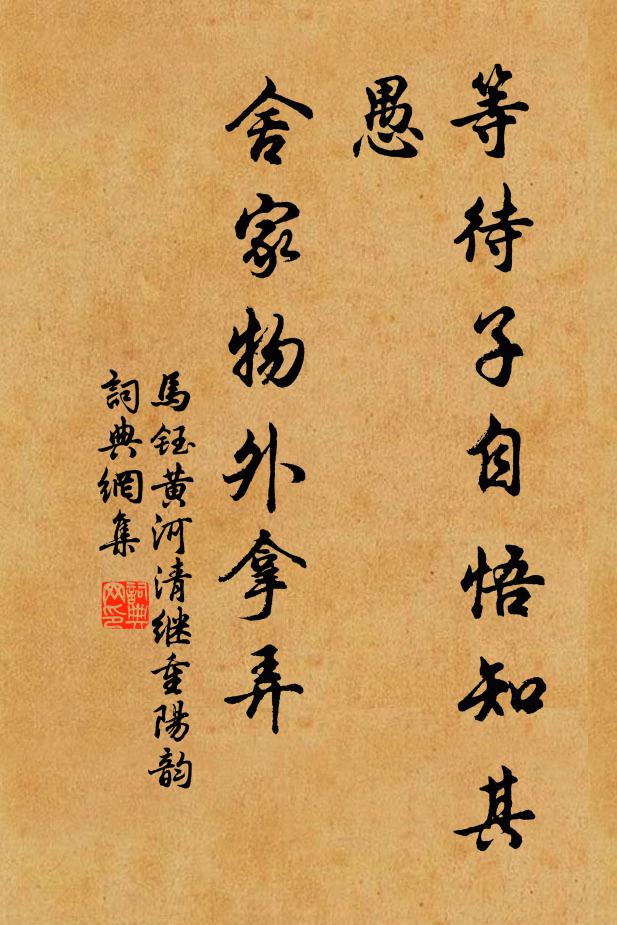 等待子自悟知其
愚
舍家物外拿弄
馬鈺黄河清继重陽韵
詞典網集
詞典网印